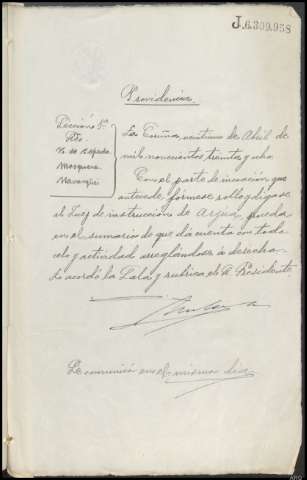 J.6.309.958
Providencia
Sección 1ª
Sres
Mosquera
La Coruña, veintiuno de Abril de
mil novecientos treinta y ocho
Con el parte de incoación que
antecede, fórmese rollo y dígase
el Juez de instrucción de Arzúa proceda
en el sumario de que dá cuenta con todo
celo y actividad arreglándose á derecho
Lo acordó la Sala y rubrica el Sr. Presidente
Se comunicó en el mismo día